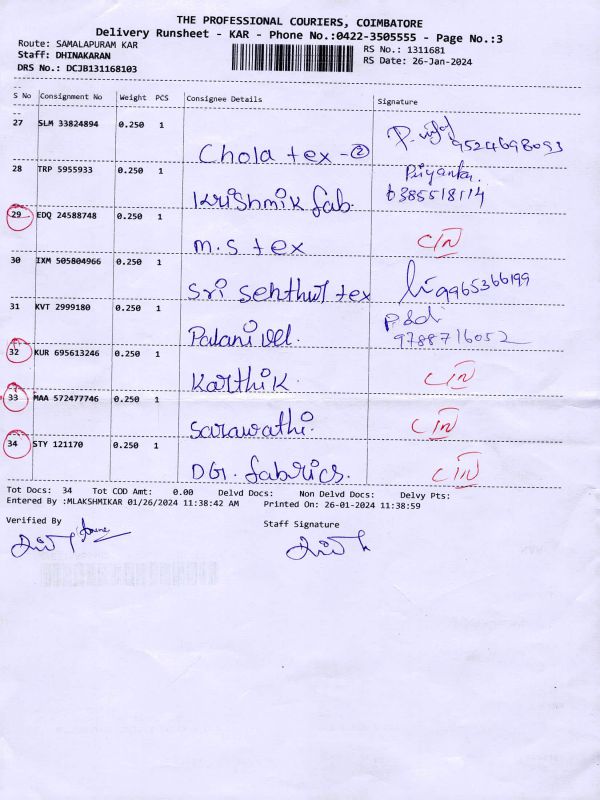 THE PROFESSIONAL COURIERS, COIMBATORE
Delivery Runsheet - KAR - Phone No.:0422-3505555 - Page No.:3
Route: SAMALAPURAM KAR
RS No.: 1311681
Staff: DHINAKARAN
RS Date: 26-Jan-2024
DRS No.: DCJB131168103
S No Consignment No Weight PCS Consignee Details Signature
27 SLM 33824894 0.250 1
Chola tex - 2 9524698093
28 TRP 5955933 0.250 1 Priyanka.
Krishmik fab. 6385518114
29 EDQ 24588748 0.250 1
M.S tex C/N
30 IXM 505804966 0.250 1
Sri Senthul tex 9965366199
31 KVT 2999180 0.250 1
Palanivel. 9788716052
32 KUR 695613246 0.250 1
Karthik. C/N
33 MAA 572477746 0.250 1
Sarawathi. C/N
34 STY 121170 0.250 1
DGI. fabrics. C/N
Tot Docs: 34 Tot COD Amt: 0.00 Delvd Docs: Non Delvd Docs: Delvy Pts:
Entered By :MLAKSHMIKAR 01/26/2024 11:38:42 AM Printed On: 26-01-2024 11:38:59
Verified By Staff Signature